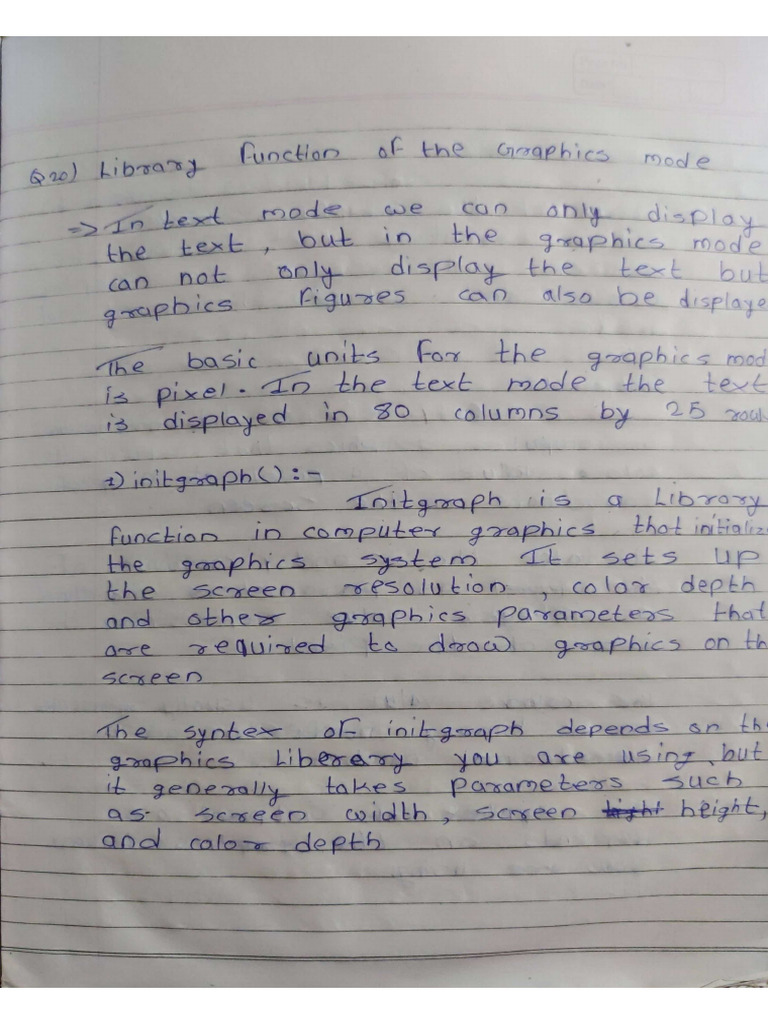 Q20) Library function of the Graphics mode
=> In text mode we can only display
the text, but in the graphics mode
can not only display the text but
graphics figures can also be displaye
The basic units for the graphics mod
is pixel. In the text mode the text
is displayed in 80 columns by 25 rows
1) initgraph() :-
Initgraph is a Library
function in computer graphics that initialize
the graphics system It sets up
the screen resolution, color depth
and other graphics parameters that
are required to draw graphics on th
screen
The syntex of initgraph depends on th
graphics Liberary you are using, but
it generally takes parameters such
as screen width, screen height,
and color depth